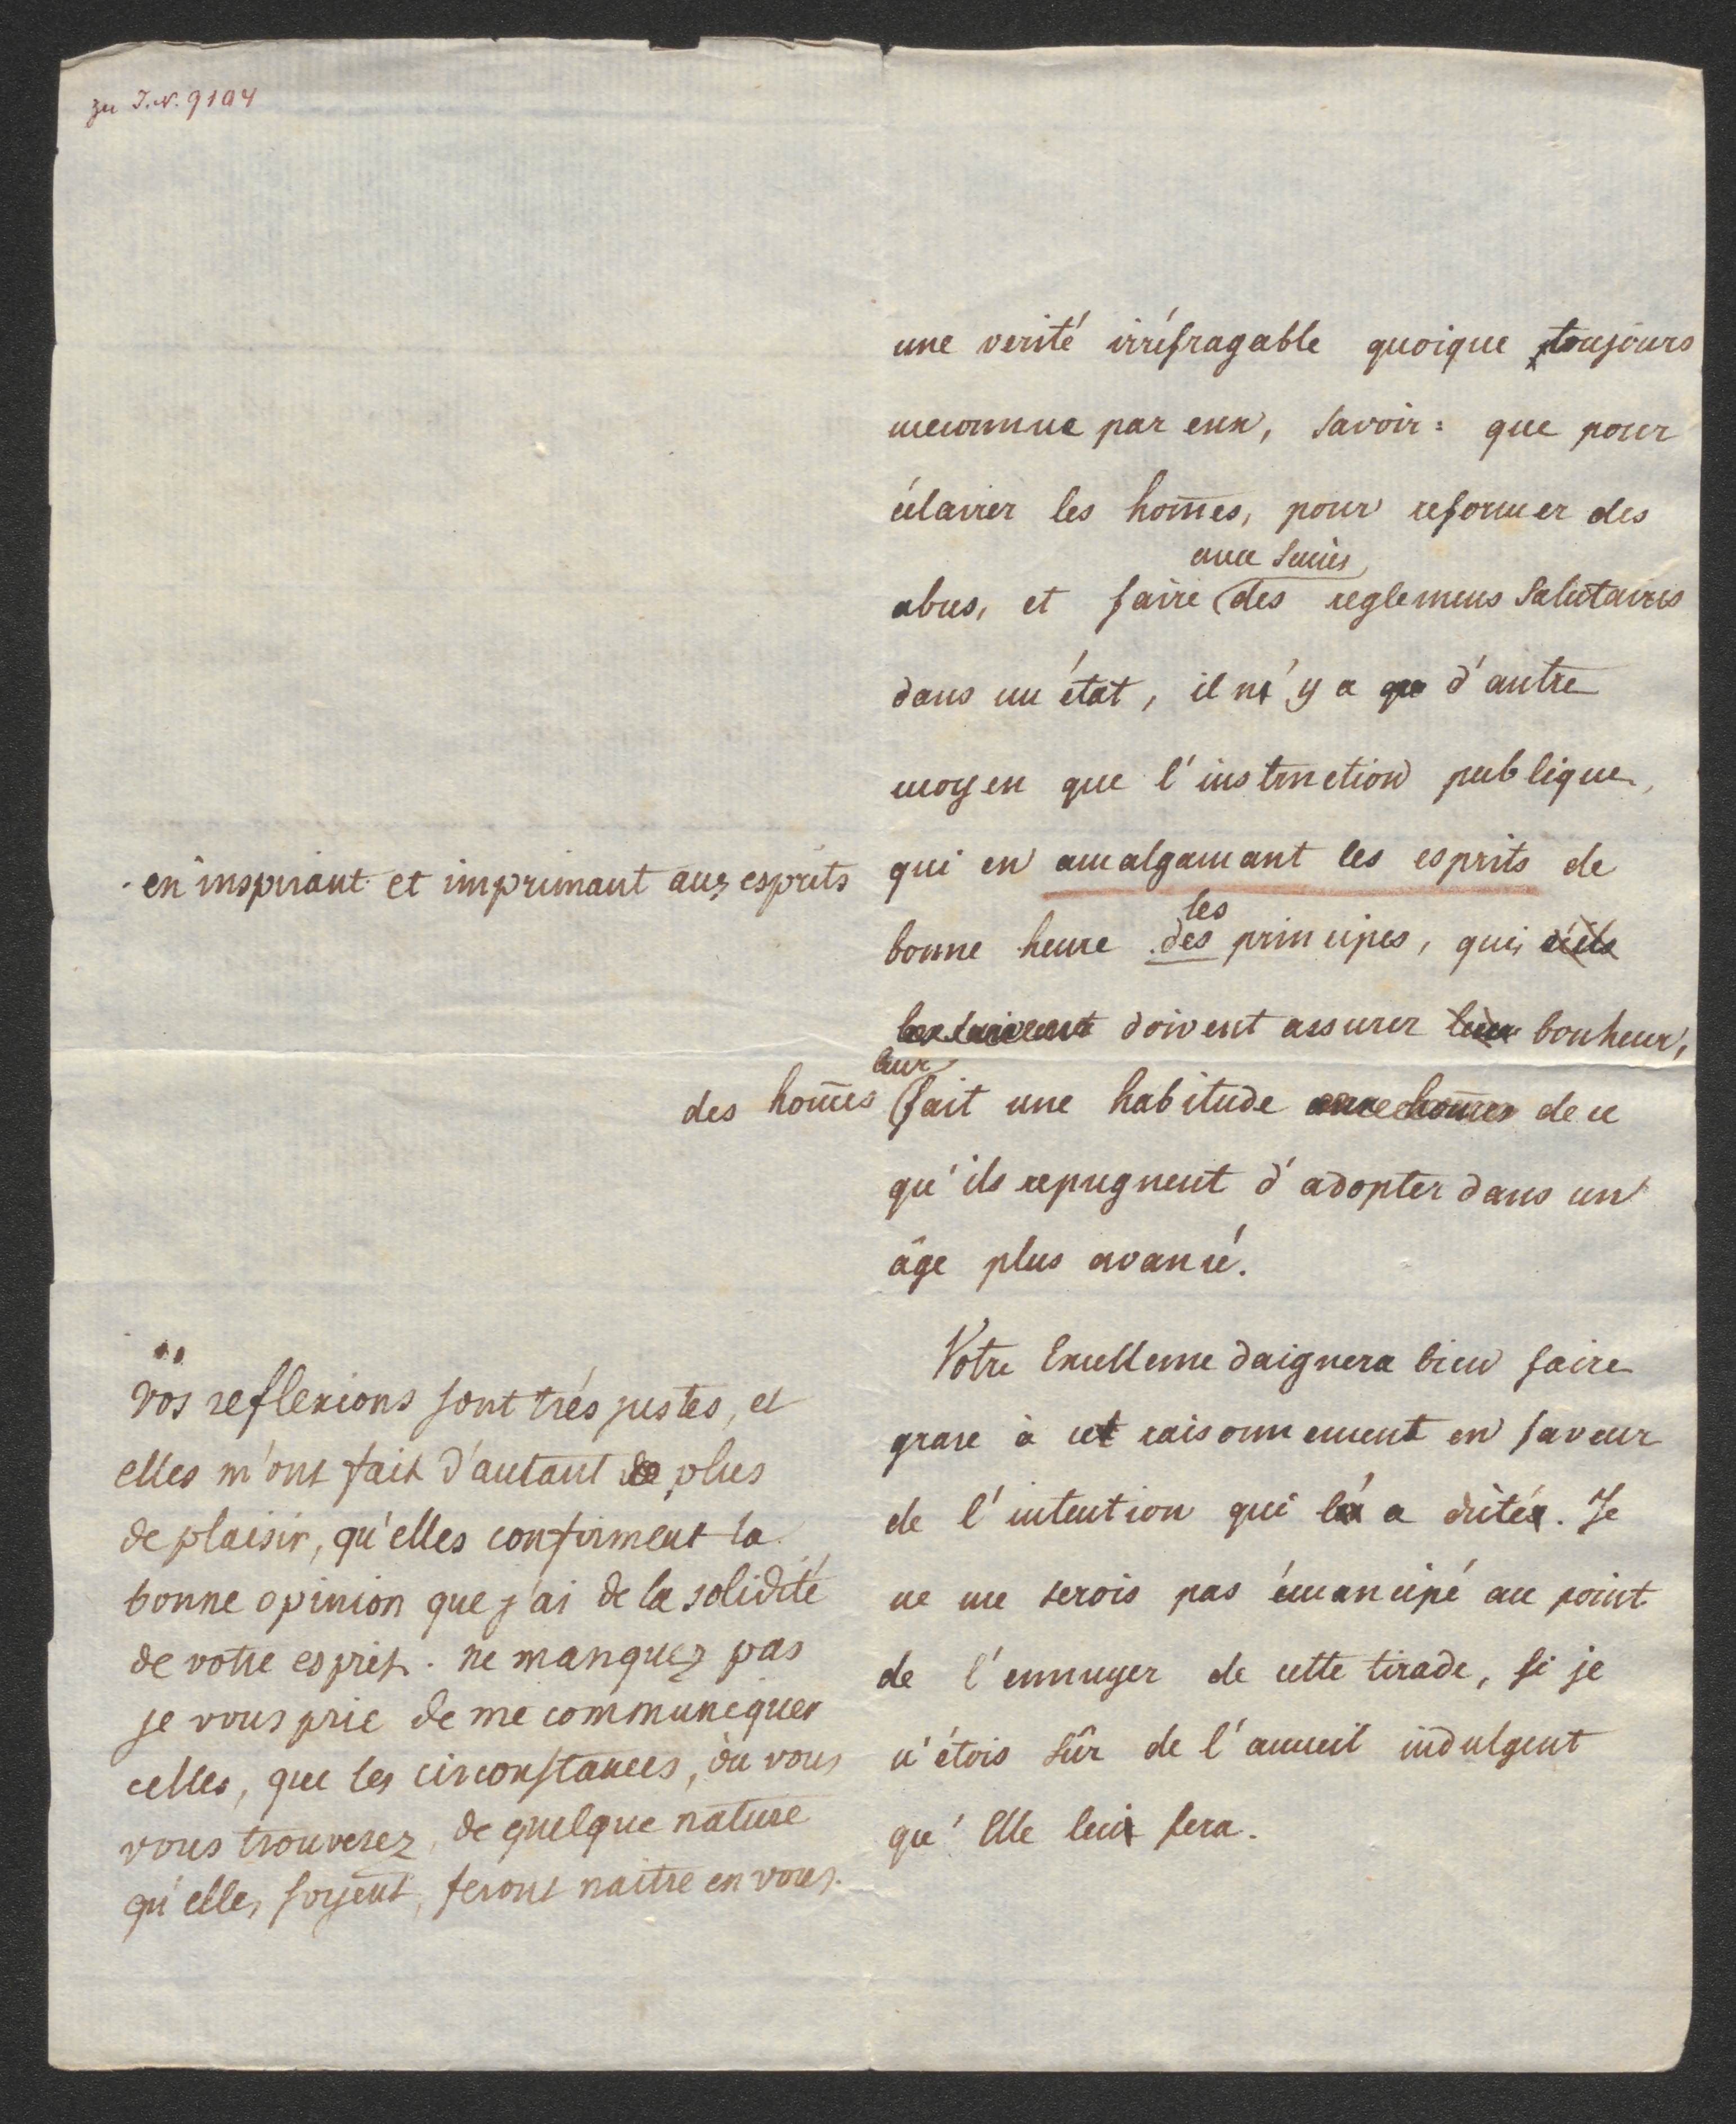 zu I.N. 9104
une verité irréfragable quoique toujours
meconnue par eux, savoir: que pour
éclairer les hom̅es, pour reformer des
avec succès
abus, et faire (des reglemens salutaires
dans un état, il n'y a d'autre
moyen que l'instruction publique,
qui en amalgamant les esprits de
les
bonne heure des principes, qui, s'ils
les suivent doivent assurer leur bonheur,
leur
(fait une habitude aux hom̅es de ce
qu'ils repugnent d'adopter dans un
âge plus avancé.
Votre Excellence daignera bien faire
grace à cet raisonnement en faveur
de l'intention qui l'a dicté. Je
ne me serois pas émancipé au point
de l'ennuyer de cette tirade, si je
n'étois sûr de l'accueil indulgent
qu'Elle lui fera.
en inspirant et imprimant aux esprits
des hom̅es
vos reflexions sont trés justes, et
elles m'ont fait d'autant de plus
de plaisir, qu'elles confirment la
bonne opinion que j'ai de la solidité
de votre esprit. ne manquez pas
je vous prie de me communiquer
celles, que les circonstances, où vous
vous trouverez, de quelque nature
qu'elles soyent, feront naitre en vous.